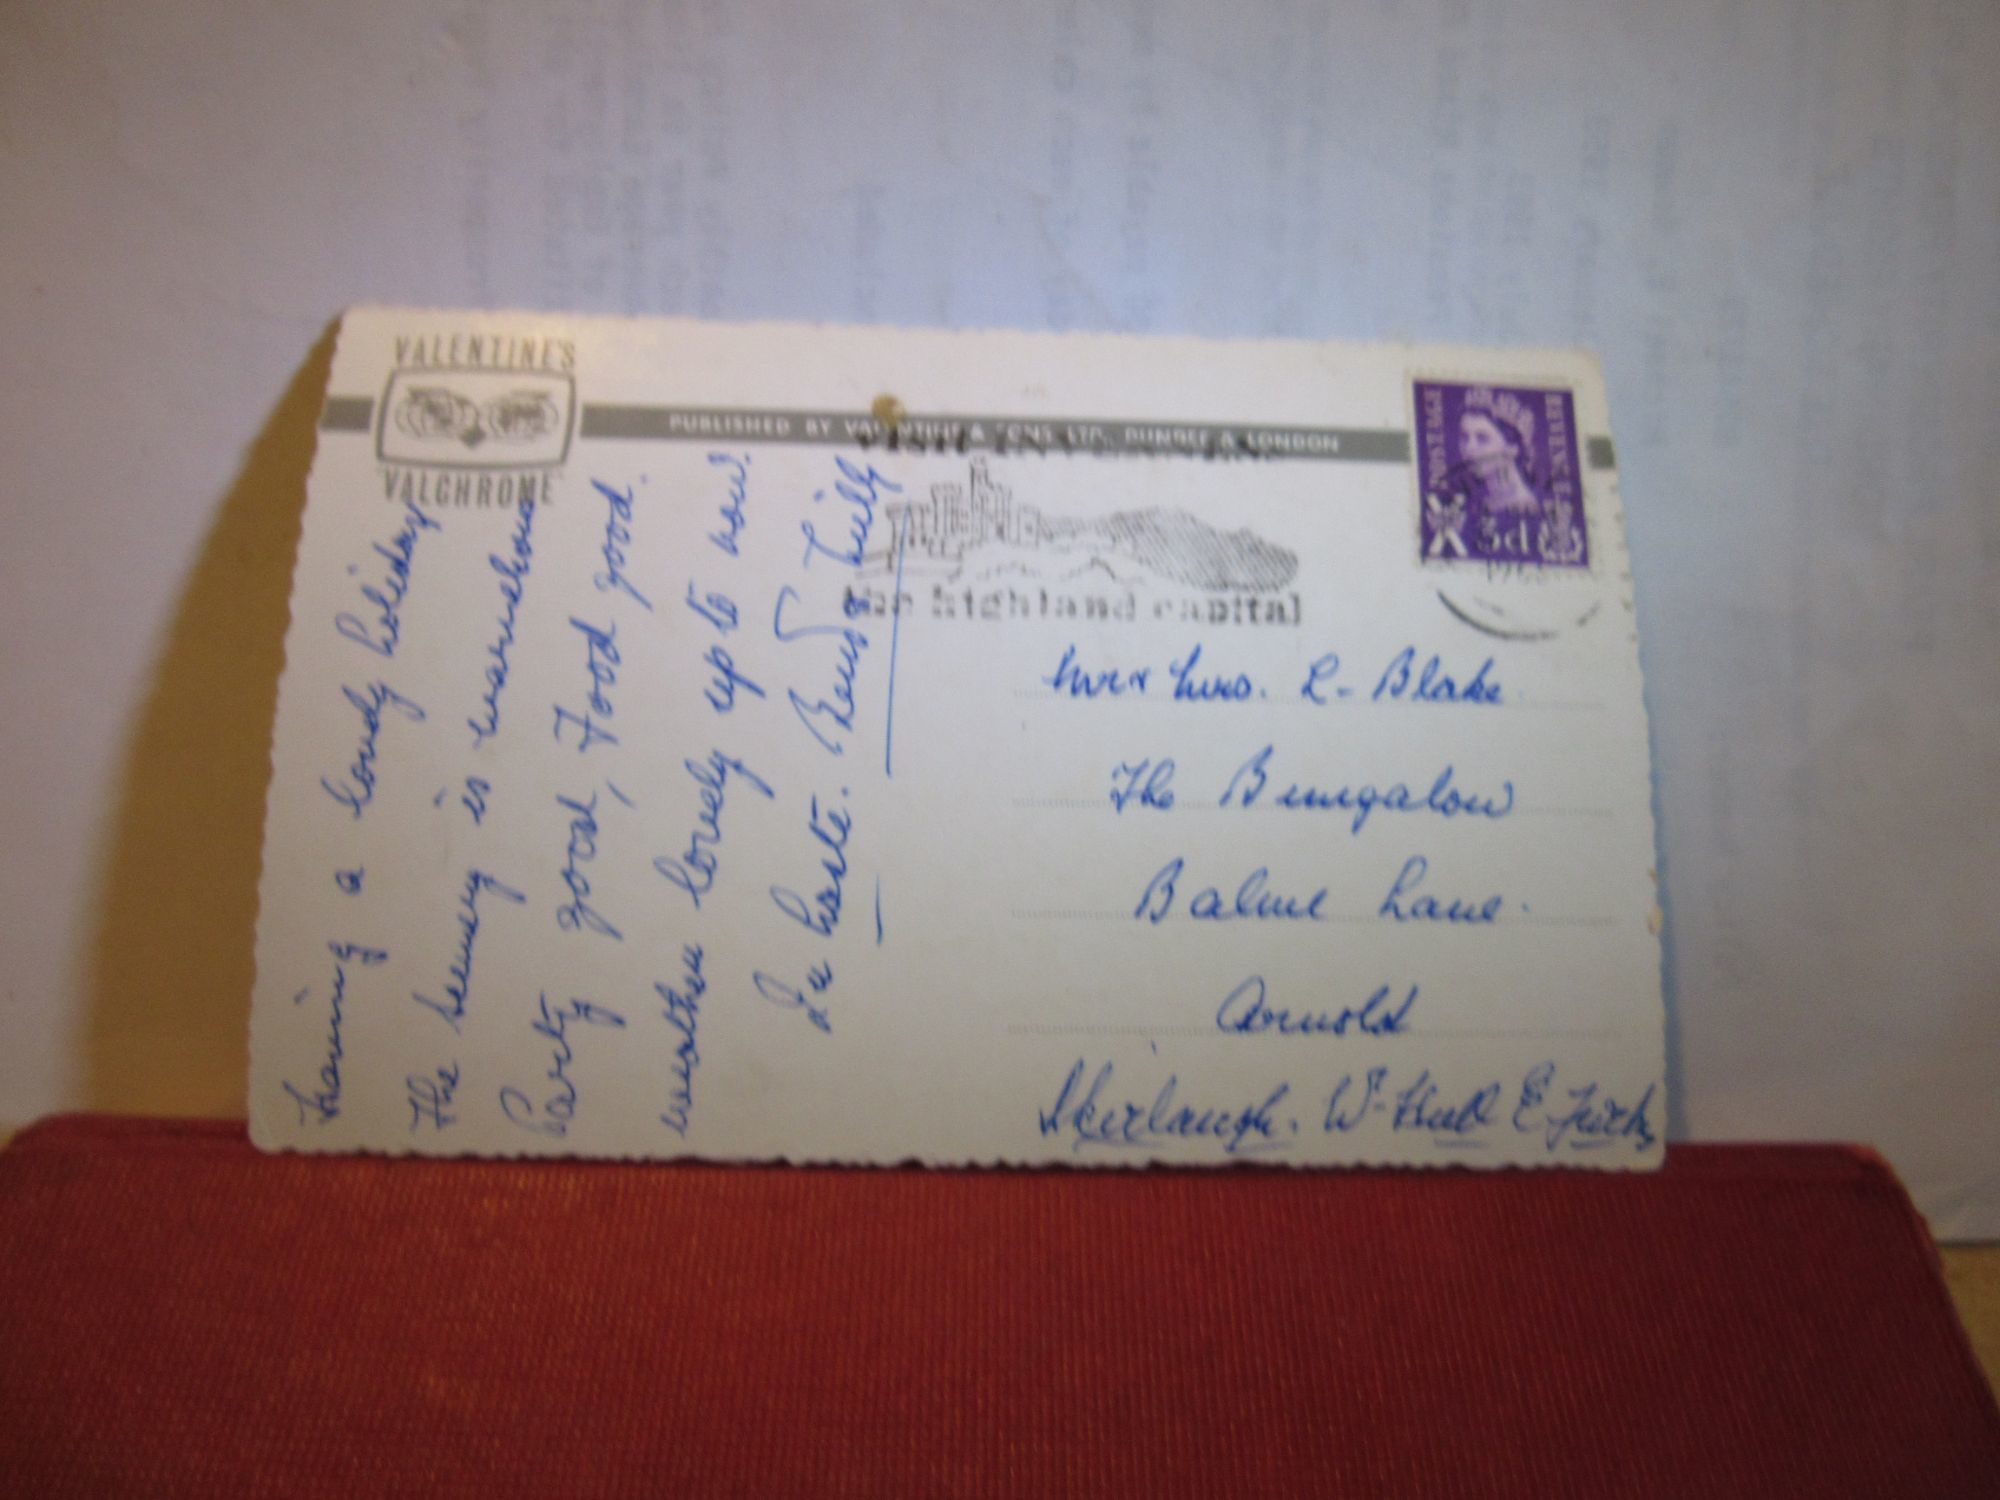 VALENTINE'S
VALCHROME
PUBLISHED BY VALENTINE & SONS LTD. DUNDEE & LONDON
VISIT INVERNESS
the highland capital
POSTAGE
REVENUE
3d
Having a lovely holiday
The scenery is marvelous
Party good, Food good.
weather lovely up to now.
In haste. & Lilly
Mr & Mrs. L. Blake.
The Bungalow
Balme Lane.
Arnold
Skirlaugh. Nr Hull E Yorks